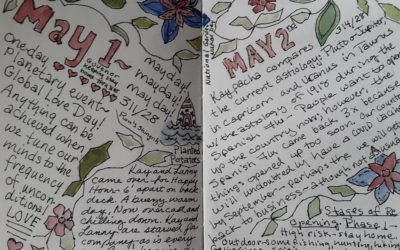 May 1~
one-day
planetary event
Global Love Day!
Anything can be
achieved when
we tune our
minds to the
frequency
of uncon
ditional
LOVE
mayday
mayday
may day
Planted
Potatoes
Kay and Lanny
came over. An
Hour - 6' apart on back
deck. A breezy warm
day. Now overcast and
chilling down. Kay and
Lanny are starved for
company as is every
MAY 2
Kaypacha compares
the current astrology: Pluto + Jupiter
in capricorn and Uranus in Taurus
w/ the astrology of 1918 during the
Spanish Flu - People want to open
up the country now, however the
Spanish Flu came back 3x because
things opened up too soon. COVID
will undoubtedly have a
September - perhaps the
back to business - autism not
Stages of Re
Opening Phase 1
High risk - stay home
Outdoor - some fishing, hunting, hiking